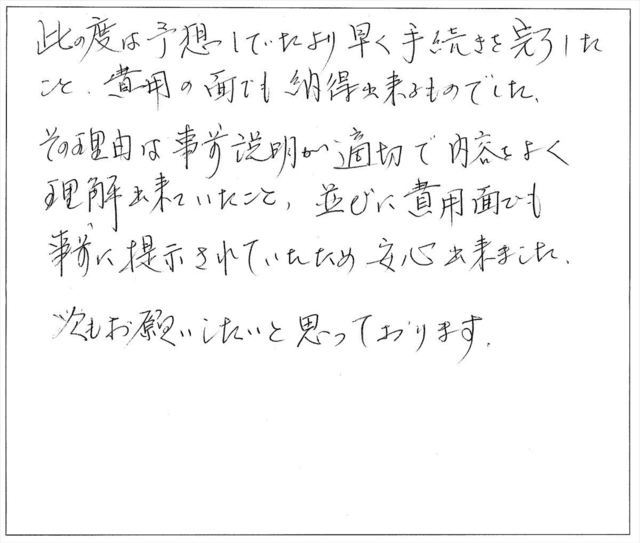 此の度は予想していたより早く手続きを完了した
こと、費用の面でも納得出来るものでした。
その理由は事前説明が適切で内容をよく
理解出来ていたこと、並びに費用面でも
事前に提示されていたため安心出来ました。
次もお願いしたいと思っております。